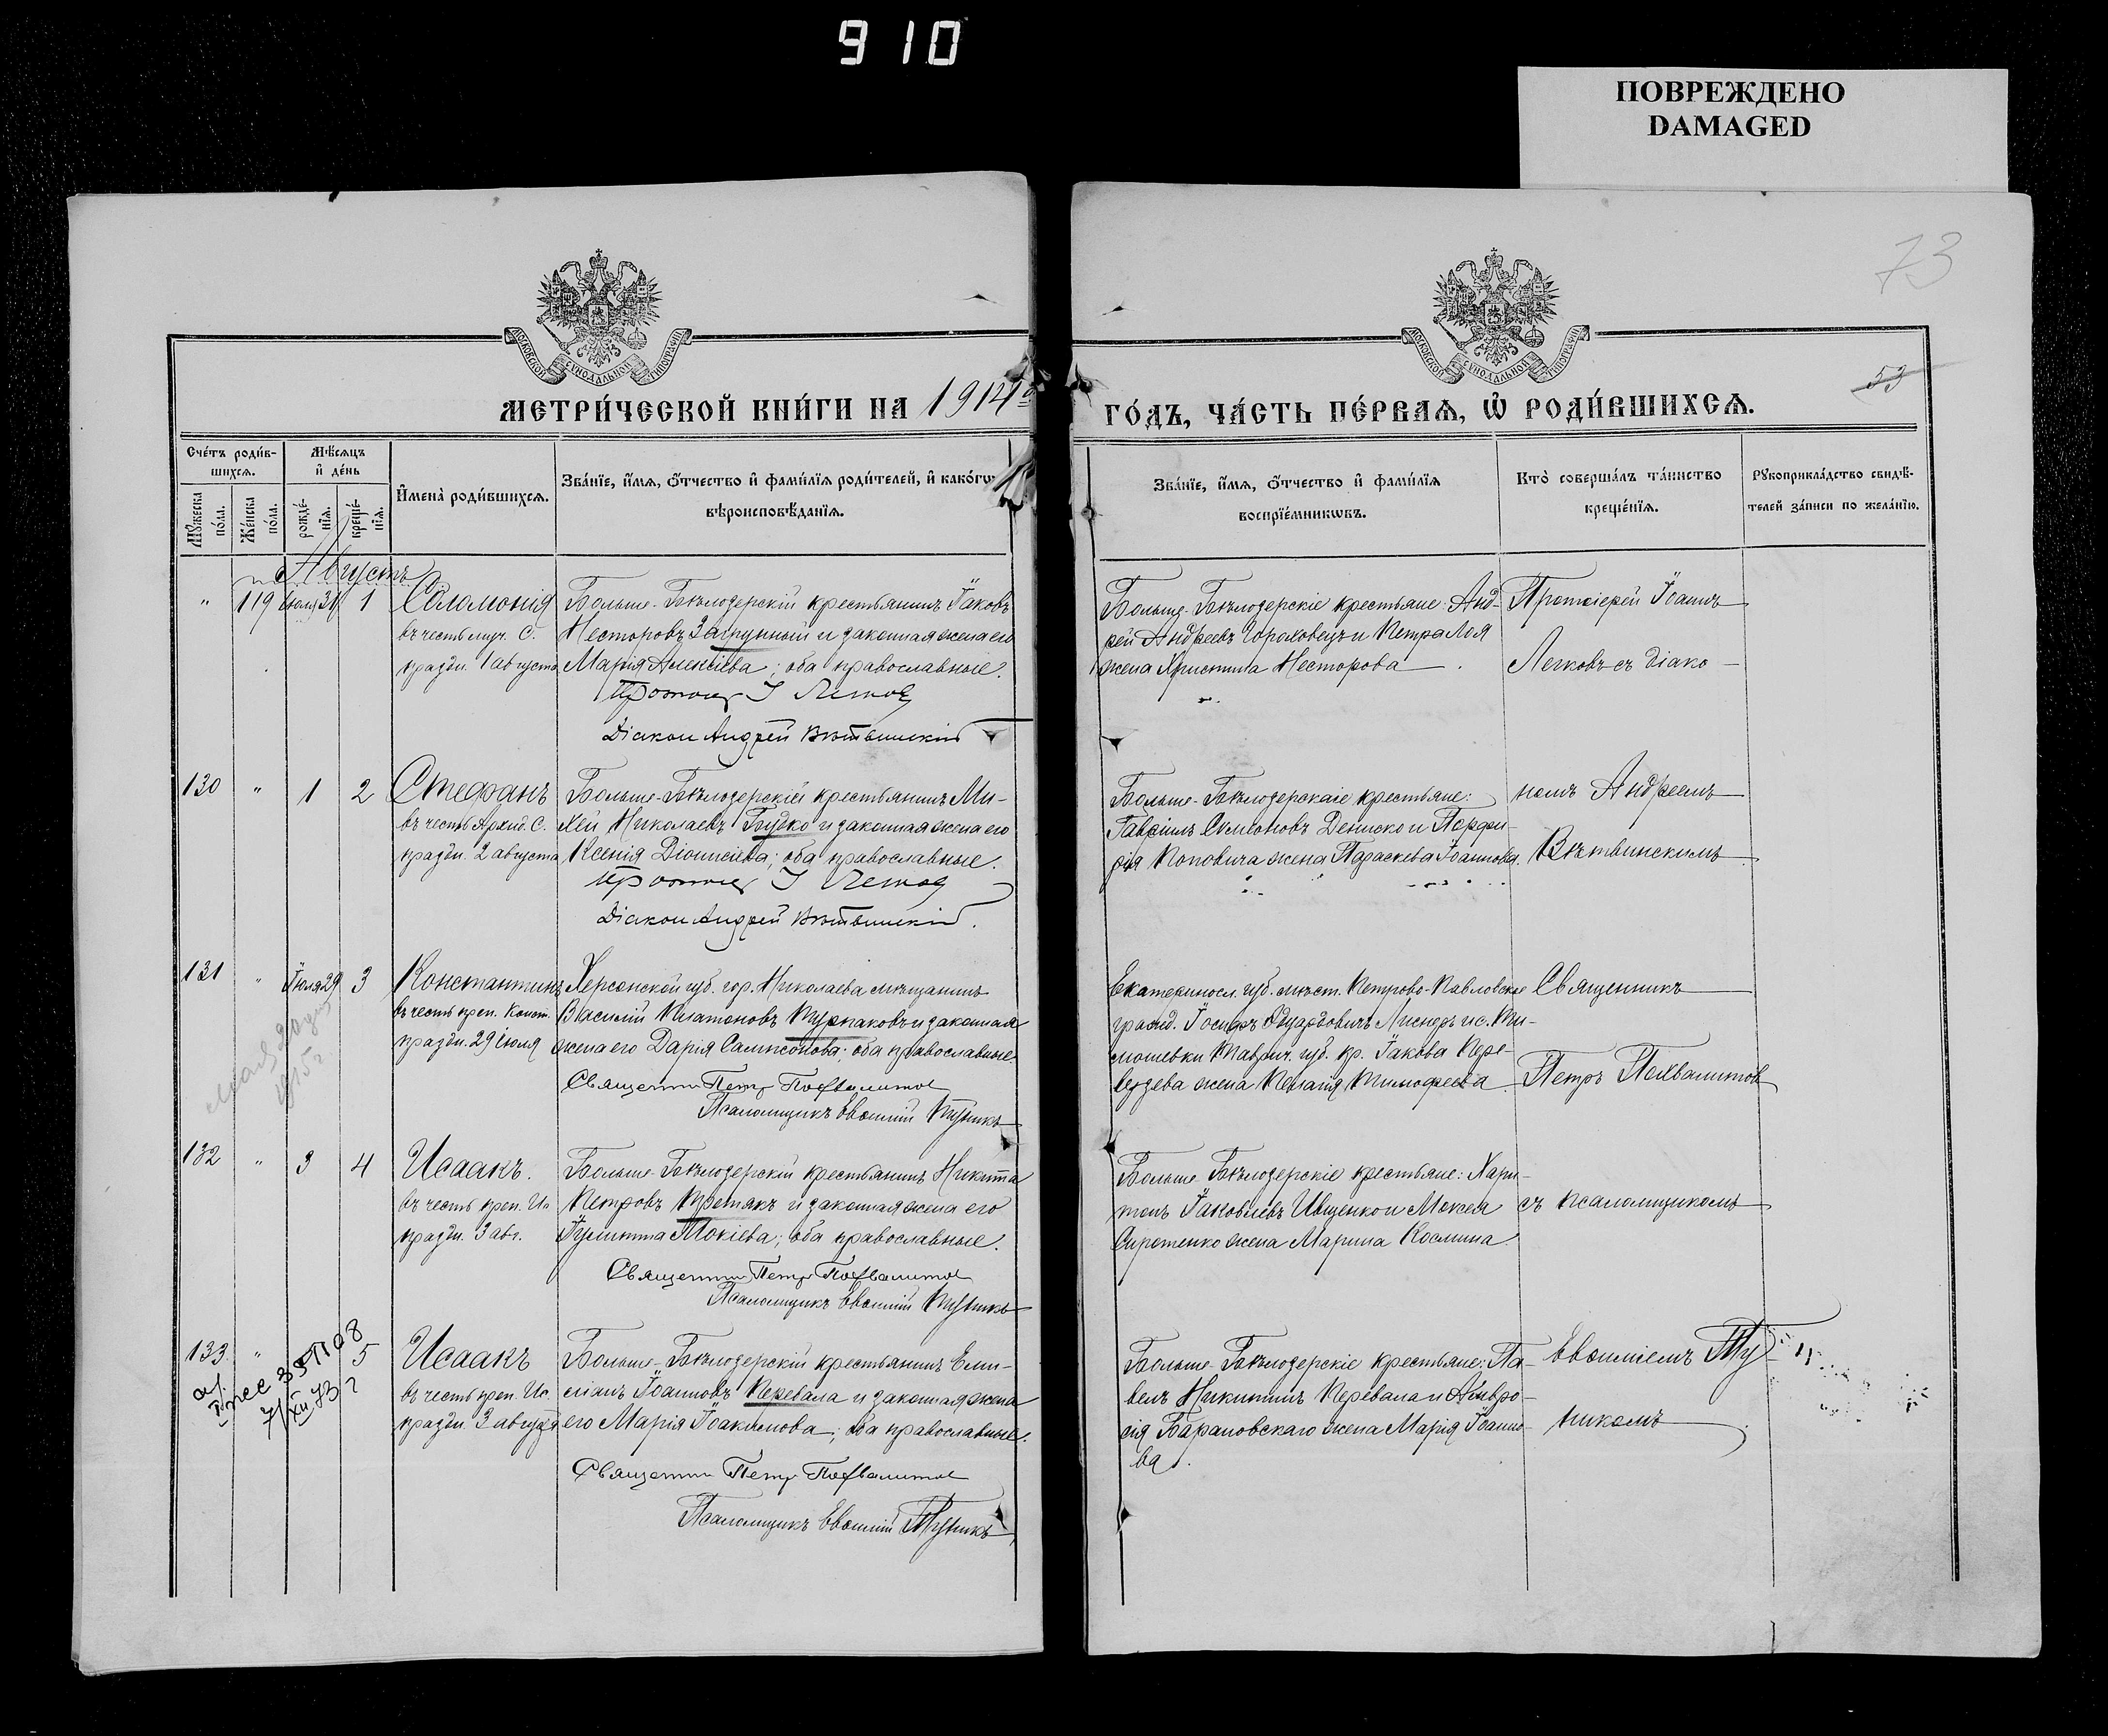 910
ПОВРЕЖДЕНО
DAMAGED
73
53
МОСКОВСКОЙ СѴНОДАЛЬНОЙ ТИПОГРАФІИ
МОСКОВСКОЙ СѴНОДАЛЬНОЙ ТИПОГРАФІИ
МЕТРИ́ЧЕСКОЙ КНИ́ГИ НА 1914
ГО́ДЪ, ЧА́СТЬ ПЕ́РВАѦ, Ѡ҆ РОДИ́ВШИХСѦ.
Сче́тъ роди́в-
шихсѧ.
Мѣ́сѧцъ
и҆ де́нь
Мꙋ́жеска по́ла.
Же́нска по́ла.
рожде́-
нїѧ.
креще́-
нїѧ.
И҆мена̀ роди́вшихсѧ.
Зва́нїе, и҆́мѧ, ѻ҆́тчество и҆ фами́лїѧ роди́телей, и҆ како́гѡ
вѣроисповѣ́данїѧ.
Зва́нїе, и҆́мѧ, ѻ҆́тчество и҆ фами́лїѧ
воспрїе́мникѡвъ.
Кто̀ соверша́лъ та́инство
креще́нїѧ.
Рꙋкоприкла́дство свидѣ́-
телей за́писи по жела́нїю.
Августъ
" 119 Іюля 31 1 Соломонія
въ честь муч. С.
праздн. 1 августа
Больше-Бѣлозерскій крестьянинъ Іаковъ
Несторовъ Загрунный и законная жена его
Марія Алексіева; оба православные.
Протоіер І Легков
Діакон Андрей Вѣтвинскій
Больше-Бѣлозерскіе крестьяне: Анд-
рей Андреевъ Гораховецъ и Петра Лоя
жена Христина Несторова
Протоіерей Іоаннъ
Легковъ съ діако-
130 " 1 2 Стефанъ
въ честь Архид. С.
праздн. 2 августа
Больше-Бѣлозерскій крестьянинъ Ми-
хей Николаевъ Будко и законная жена его
Ксенія Діонисіева; оба православные.
Протоіер І Легков
Діакон Андрей Вѣтвинскій.
Больше-Бѣлозерскіе крестьяне:
Гавріилъ Симеоновъ Дениско и Порфи-
рія Поповича жена Параскева Іоаннова.
номъ Андреемъ
Вѣтвинскимъ.
131 " Іюля 29 3 Константинъ
въ честь преп. Конст.
праздн. 29 іюля
1915 г.
Херсонской губ. гор. Николаева мѣщанинъ
Василій Платоновъ Пурпаковъ и законная
жена его Дарія Сампсонова; оба православные.
Священник Петр Похвалитов
Псаломщикъ Евѳимій Путникъ
Екатериносл. губ. мѣст. Петрово-Павловское
гражд. Іосифъ Эдуардовичъ Лисндръ и с. Ти-
мошевки Таврич. губ. кр. Іакова Пере-
верзева жена Пелагія Тимофеева
Священникъ
Петръ Похвалитов
132 " 3 4 Исаакъ.
въ честь преп. Ис
праздн. 3 авг.
Больше-Бѣлозерскій крестьянинъ Никита
Петровъ Третякъ и законная жена его
Іулитта Мокіева; оба православные.
Священник Петр Похвалитов
Псаломщикъ Евѳимій Путникъ
Больше-Бѣлозерскіе крестьяне: Хари-
тонъ Іаковлевъ Ивщенко и Моисея
Сиротенко жена Марина Космина
съ псаломщикомъ
133. " 3 5 Исаакъ
въ честь преп. Ис.
праздн. 3 августа
7/XII 73 г
Больше-Бѣлозерскій крестьянинъ Еми-
ліанъ Іоанновъ Перевала и законная жена
его Марія Іоакимова; оба православные.
Священник Петр Похвалитов
Псаломщикъ Евѳимій Путникъ
Больше-Бѣлозерскіе крестьяне: Па-
велъ Никитинъ Перевала и Амвро-
сія Барановскаго жена Марія Іоанно-
ва.
Евѳиміемъ Пу-
никомъ